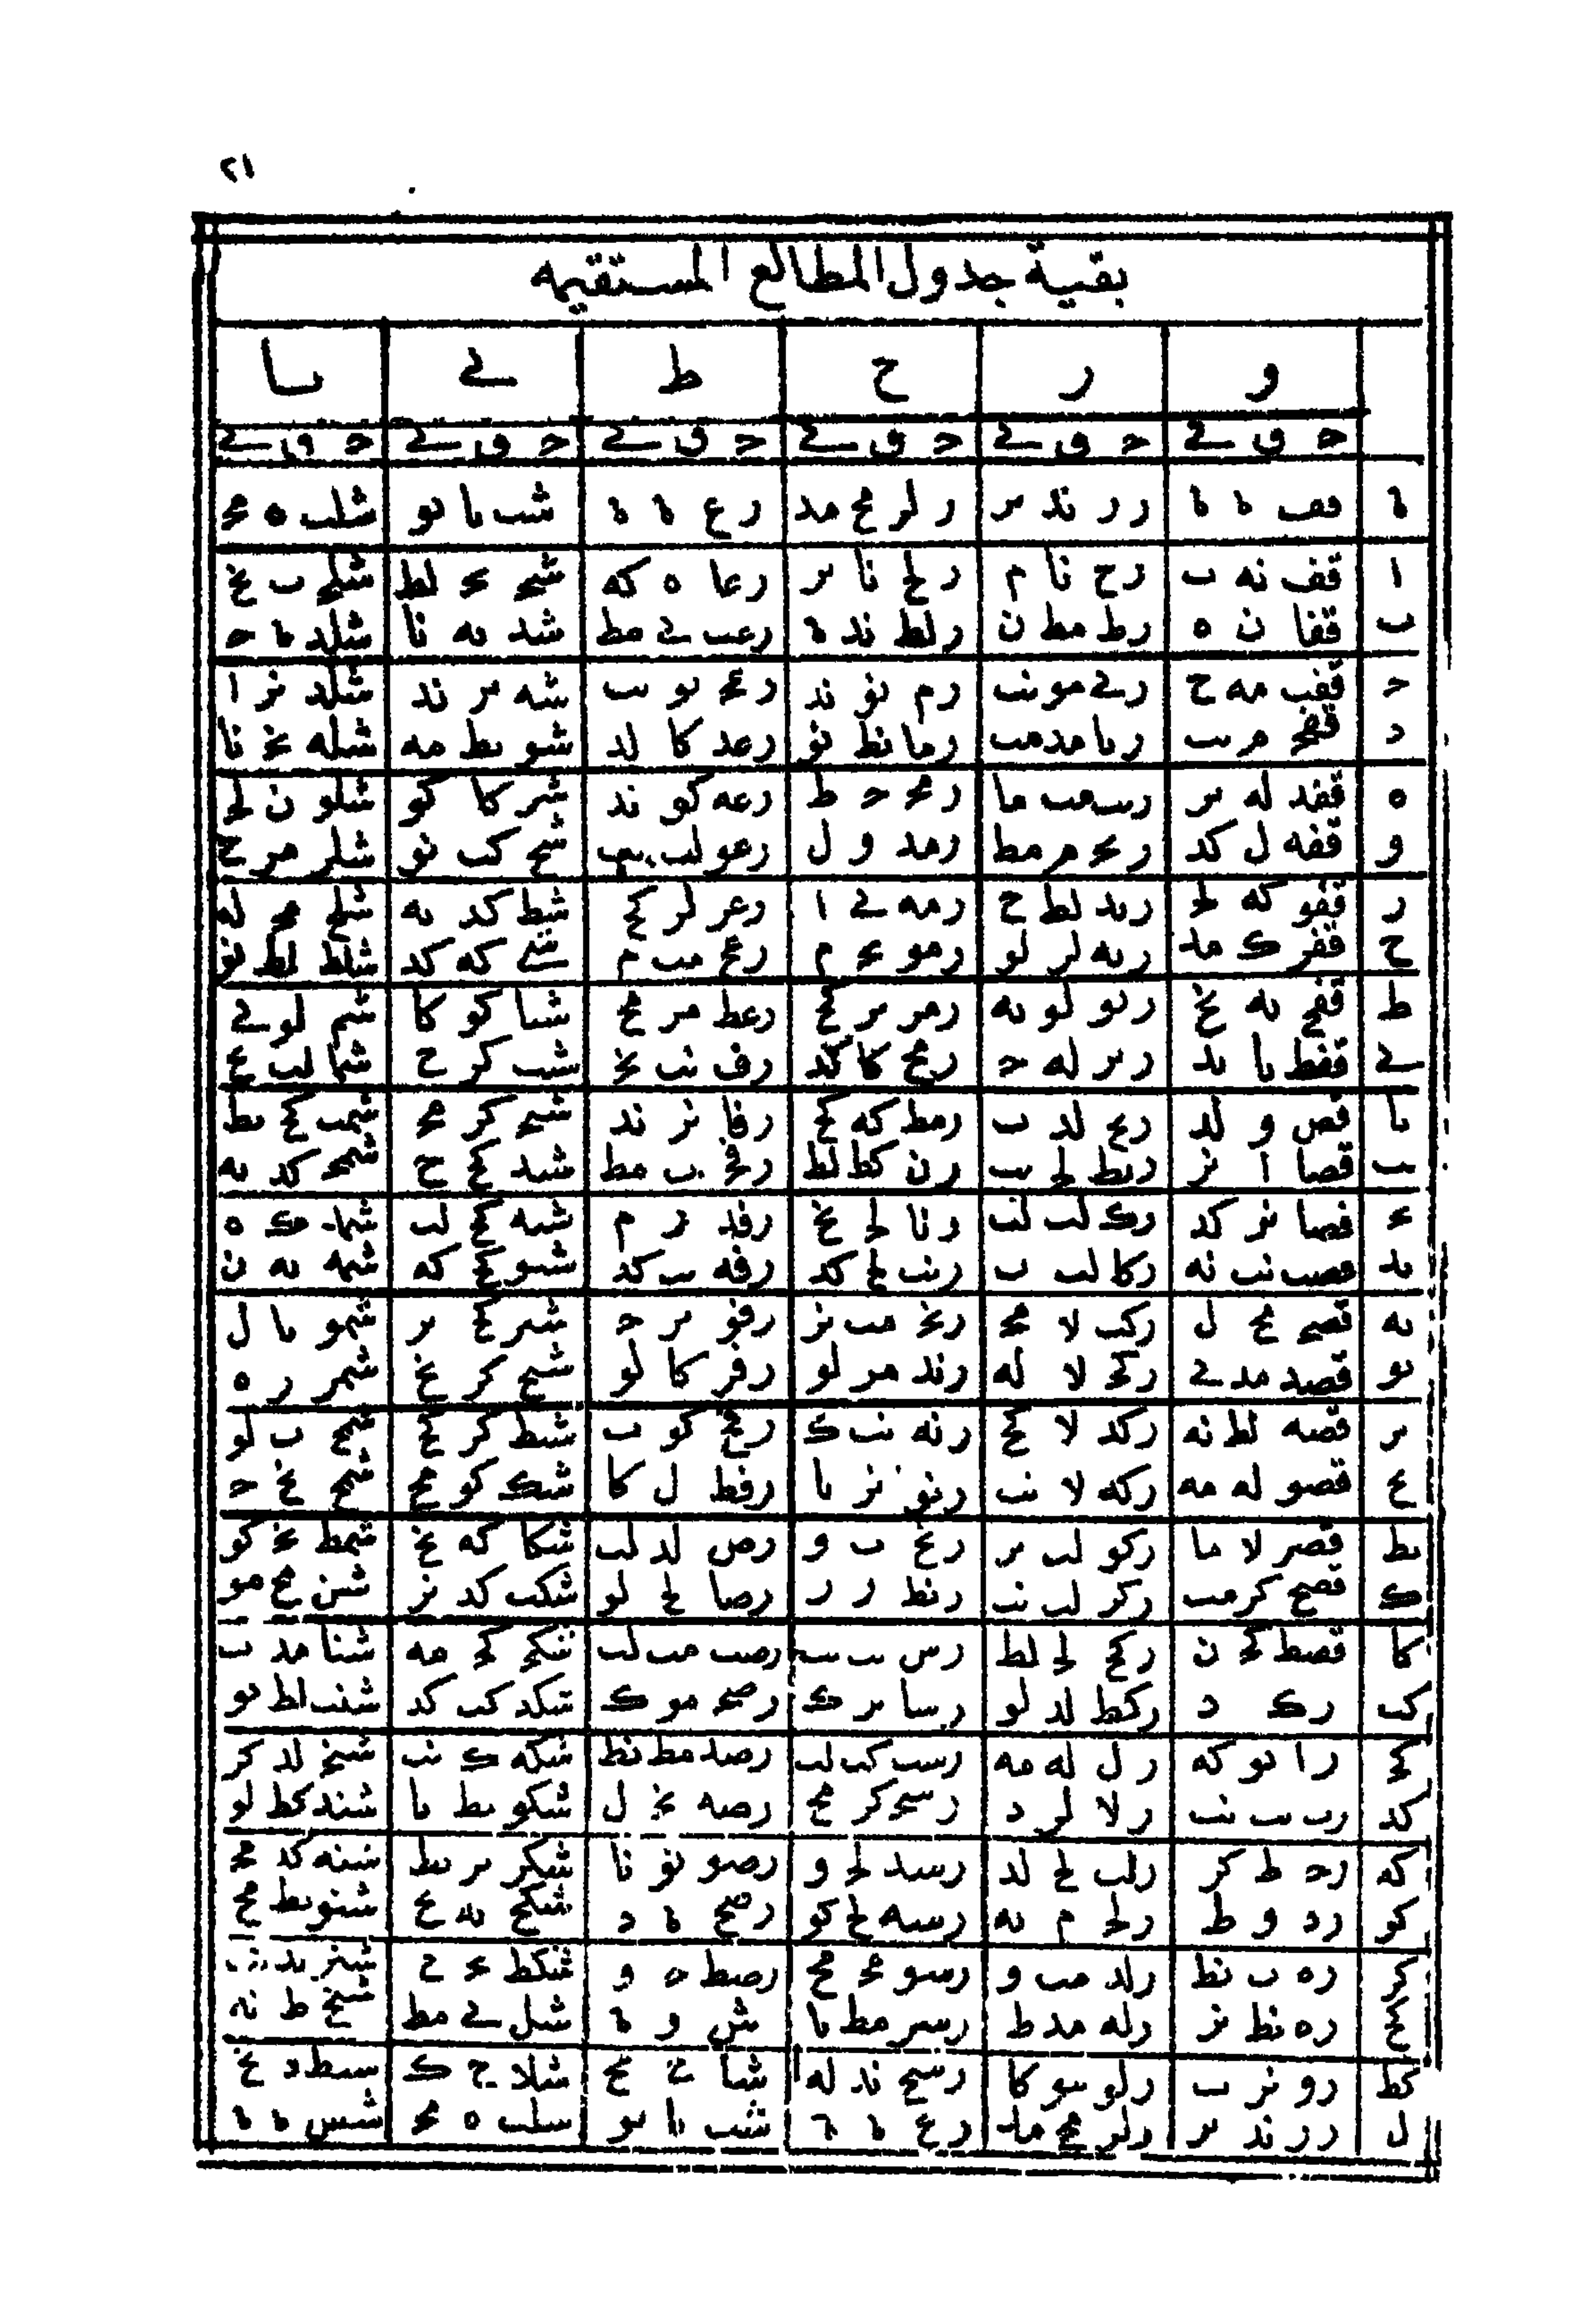 ٢١
بقية جدول المطالع المستقيمه
و ر ح ط ے ىا
ح ق ے ح ق ے ح ق ے ح ق ے ح ق ے ح ق ے
ه قف ه ه رر ند ىر رلر مح مد رع ه ه شب ىا ىو شلب ه مح
ا قف نه ب رح نا م رلح نا ىر رعا ه كه شج ىح لط شلج ب نح
ب قفا ن ه رط مط ن رلط ند ه رعب ے مط شد ىه نا شلد ه ح
ح قفب مه ح رے مو نب رم نو ند رعج ىو ىب شه ىر ند شلد نر ا
د قفج م ىب رىا مد مب رما نط نو رعد كا لد شو ىط مه شله نح نا
ه قفد له ىر رىب مب ما رمج ح ط رعه كو ند شر كا كو شلو ن لح
و قفه ل كد رىح م مط رمد و ل رعو لب ىب شح كب نو شلر مر ح
ر قفو كه لح رىد لط ح رمه ے ا رعر لر كح شط كد ىه شلح مح له
ح قفر ك مد رىه لر لو رمو ىح م رعح مب م شے كه كد شلط لط نو
ط قفح ىه نح رىو لو ىه رمر ىر كح رعط مر مح شىا كو كا شم لو ے
ے قفط ىا ىد رىر له ح رمح كا كد رف نب نح شىب كر ح شما لب ىح
ىا قص و لد رىح لد ب رمط كه كح رفا نر ند شىج كر مح شمب كح ىط
ىب قصا ا نر رىط لح ىب رن كط لط رفج ب مط شىد كح ح شمج كد ىه
ىح قصا نر كد رك لب لب رنا لح نح رفد ر م شىه كح لب شمد ك ه
ىد قصب نب نه ركا لب ب رنب لح كد رفه ىب كد شىو كح كه شمه ىه ن
ىه قصج مح ل ركب لا مح رنج مب نر رفو ىر ح شىر كح ىر شمو ىا ل
ىو قصد مد ے ركح لا له رند مر لو رفر كا لو شىح كر نح شمر ر ه
ىر قصه لط نه ركد لا كح رنه نب ك رفح كو ب شىط كر كح شمح ب لو
ىح قصو له مه ركه لا نب رنو نر ىا رفط ل كا شك كو مح شمح نح ح
ىط قصر لا ما ركو لب ىر رنح ب و رص لد لب شكا كه نح شمط نح كو
ك قصح كر مب ركر لب نب رنط ر ر رصا لح لو شكب كد نر شن مح مو
كا قصط كح ن ركح لح لط رس ىب ىب رصب مب لب شكج كح مه شنا مد ب
كب رك د ركط لد لو رسا ىر ك رصج مو ك شكد كب كد شنب لط ىو
كح را ىو كه رل له مه رسب كب لب رصد مط نط شكه ك نب شنج لد كر
كد رب ىب نب رلا لر د رسج كر مح رصه نح ل شكو ىط ىا شند كط لو
كه رح ط كر رلب لح لد رسد لح و رصو نو نا شكر ىر ىط شنه كد مح
كو رد و ط رلج م ىه رسه لح كو رصح ه د شكح ىه ىح شنو ىط مح
كر ره ب نط رلد مب و رسو مح مح رصط ح و شكط ىح ح
كح ره نط نر رله مد ط رسر مط ىا ش و ه شل ے مط شنح ط نه
كط رو نر ب رلو مو كا رسح ند له شا ح شلا ح ك
ل رر ند ىر رلر مح مد رع ه ه شب ىا ىو شلب ه مح شس ه ه